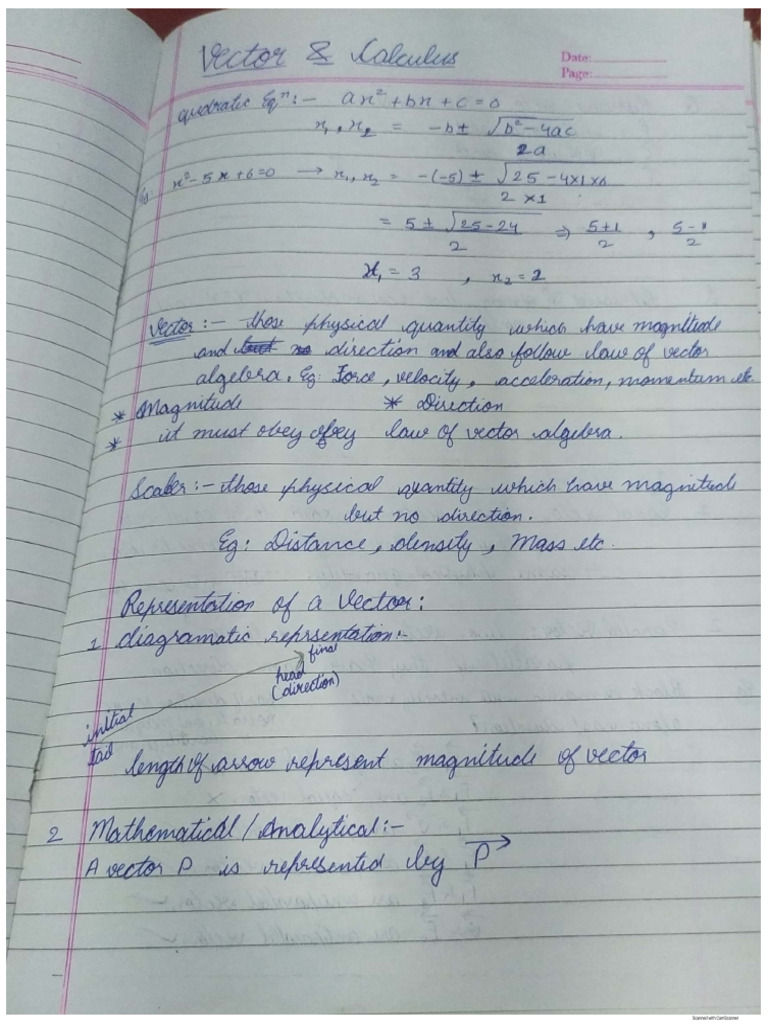 Vector & Calculus
Date:
Page:
quadratic Eqⁿ :- ax² + bx + c = 0
x₁, x₂ = -b ± √b² - 4ac
2a
Eg: x² - 5x + 6 = 0 → x₁, x₂ = -(-5) ± √25 - 4×1×6
2×1
= 5 ± √25 - 24 ⇒ 5+1 , 5-1
2 2 2
x₁ = 3 , x₂ = 2
Vector :- those physical quantity which have magnitude
and but no direction and also follow law of vector
algebra. Eg: Force, velocity, acceleration, momentum etc
* Magnitude * Direction
* it must obey obey law of vector algebra.
Scaler :- those physical quantity which have magnitude
but no direction.
Eg: Distance, density, Mass etc.
Representation of a Vector:
1 diagramatic reprsentation:-
final
head
(direction)
initial
tail
length of arrow represent magnitude of vector
2 Mathematical / Analytical:-
A vector P is represented by P→
Scanned with CamScanner